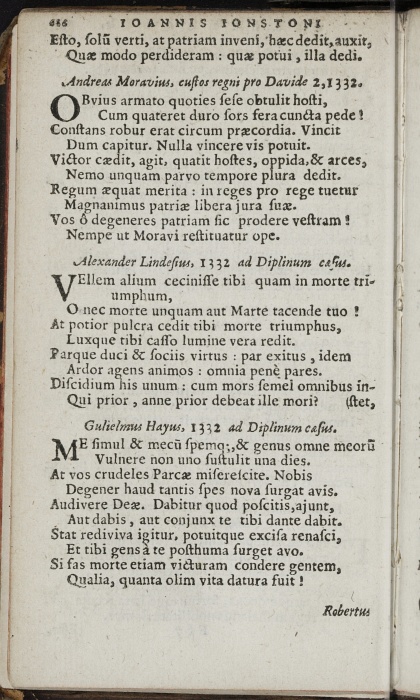 666 IOANNIS IONSTONI
Eſto, ſolū verti, at patriam inveni, hæc dedit, auxit,
Quæ modo perdideram : quæ potui , illa dedi.
Andreas Moravius, cuſtos regni pro Davide 2,1332.
OBvius armato quoties ſeſe obtulit hoſti,
Cum quateret duro ſors fera cuncta pede !
Conſtans robur erat circum præcordia. Vincit
Dum capitur. Nulla vincere vis potuit.
Victor cædit, agit, quatit hoſtes, oppida, & arces,
Nemo unquam parvo tempore plura dedit.
Regum æquat merita : in reges pro rege tuetur
Magnanimus patriæ libera jura ſuæ.
Vos ô degeneres patriam ſic prodere veſtram !
Nempe ut Moravi reſtituatur ope.
Alexander Lindeſius, 1332 ad Diplinum caſus.
VEllem alium ceciniſſe tibi quam in morte tri-
umphum,
O nec morte unquam aut Marte tacende tuo !
At potior pulcra cedit tibi morte triumphus,
Luxque tibi caſſo lumine vera redit.
Parque duci & ſociis virtus : par exitus , idem
Ardor agens animos : omnia penè pares.
Diſcidium his unum : cum mors ſemel omnibus in-
Qui prior , anne prior debeat ille mori? (ſtet,
Gulielmus Hayus, 1332 ad Diplinum caſus.
ME ſimul & mecū ſpemq;,& genus omne meorū
Vulnere non uno ſuſtulit una dies.
At vos crudeles Parcæ miſereſcite. Nobis
Degener haud tantis ſpes nova ſurgat avis.
Audivere Deæ. Dabitur quod poſcitis,ajunt,
Aut dabis , aut conjunx te tibi dante dabit.
Stat rediviva igitur, potuitque exciſa renaſci,
Et tibi gens à te poſthuma ſurget avo.
Si fas morte etiam victuram condere gentem,
Qualia, quanta olim vita datura fuit !
Robertus